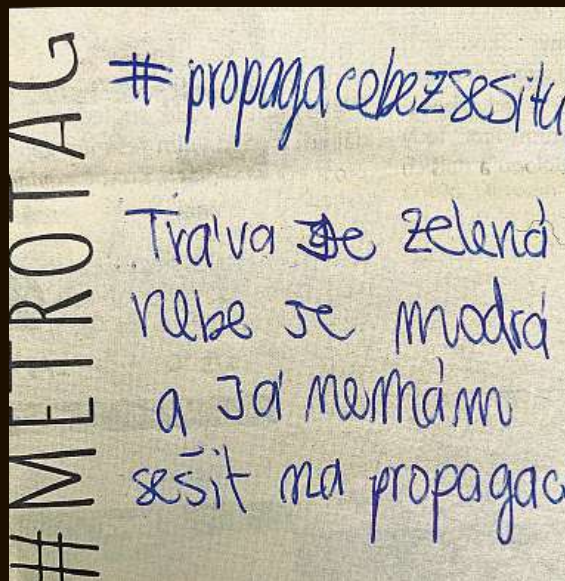 #METROTAG
#propagacebezsesitu
Tráva je zelená
nebe je modrá
a já nemám
sešit na propagac